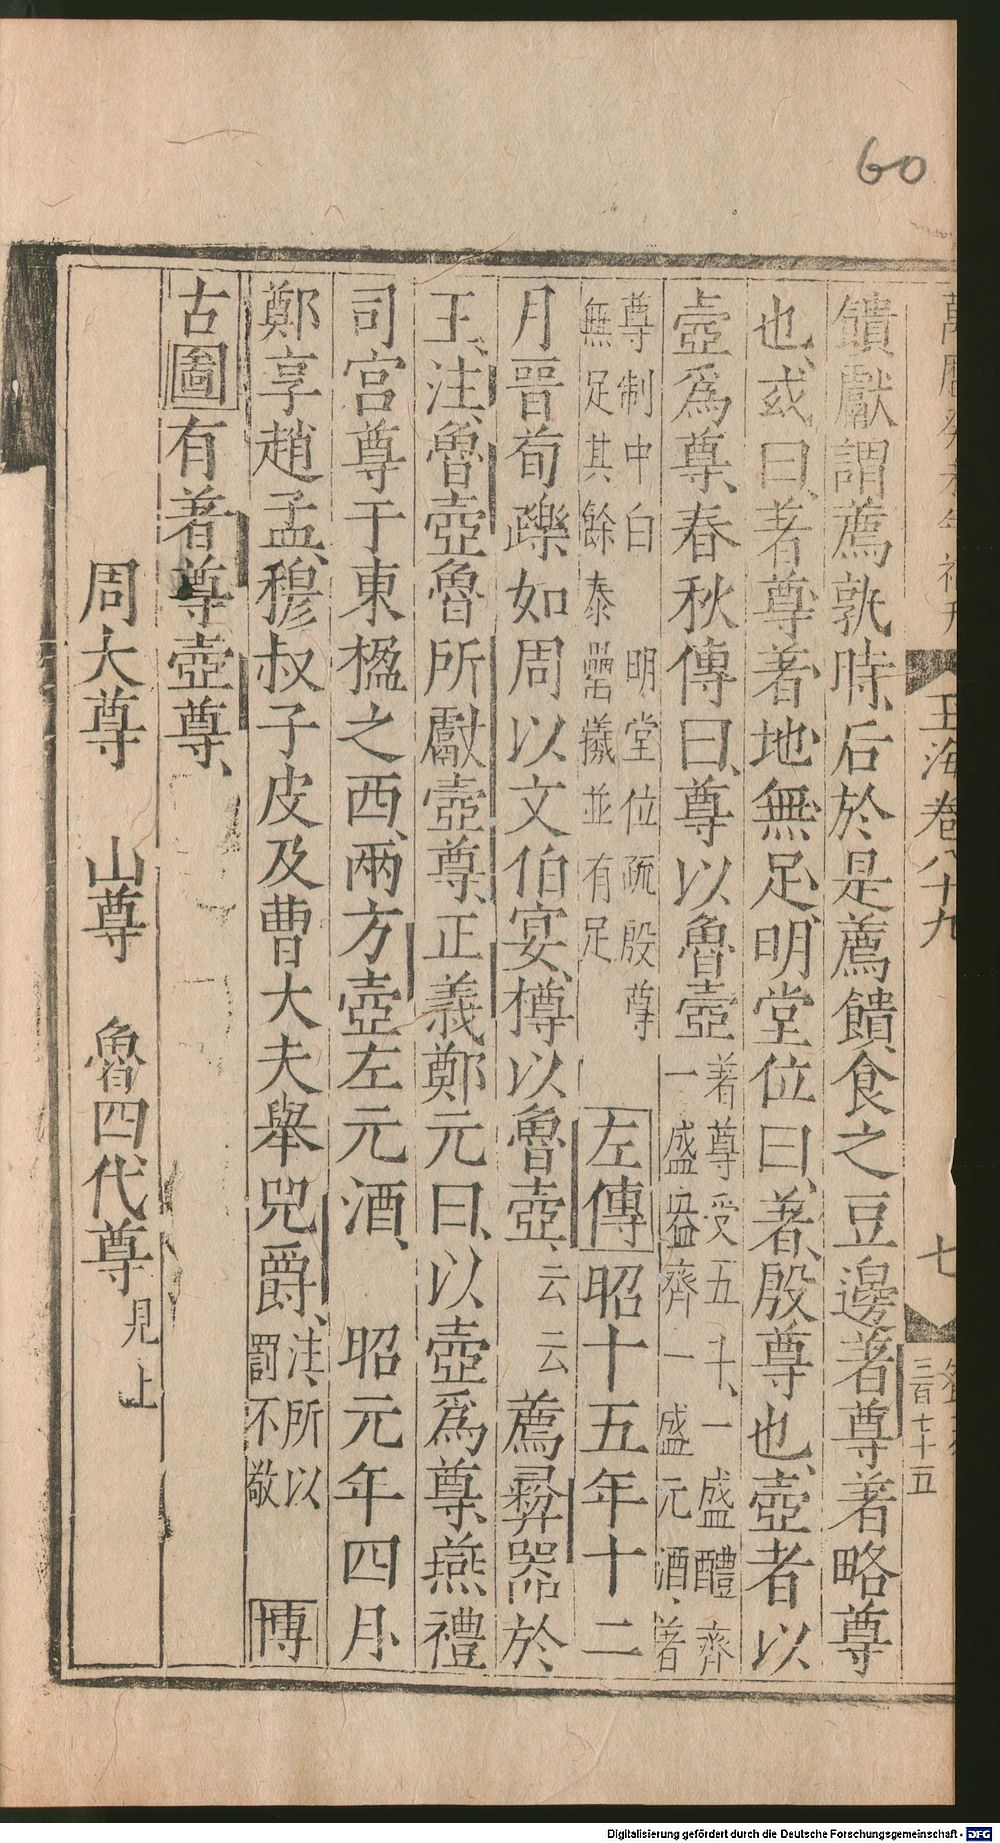 60
玉海卷八十九
七
三百七十五
饋獻謂薦孰時后於是薦饋食之豆邊著尊著略尊
也或曰著尊著地無足明堂位曰著殷尊也壺者以
壺爲尊春秋傳曰尊以魯壺著尊受五斗一盛醴齊
一盛盎齊一盛元酒著
尊制中白 明堂位疏殷尊
無足其餘泰罍犧並有足 左傳昭十五年十二
月晉荀躒如周以文伯宴樽以魯壺云云薦彛器於
王注魯壺魯所獻壺尊正義鄭元曰以壺爲尊燕禮
司宮尊于東楹之西兩方壺左元酒 昭元年四月
鄭享趙孟穆叔子皮及曹大夫舉兕爵注所以
罰不敬 博
古圖有著尊壺尊
周大尊 山尊 魯四代尊見上
Digitalisierung gefördert durch die Deutsche Forschungsgemeinschaft - DFG